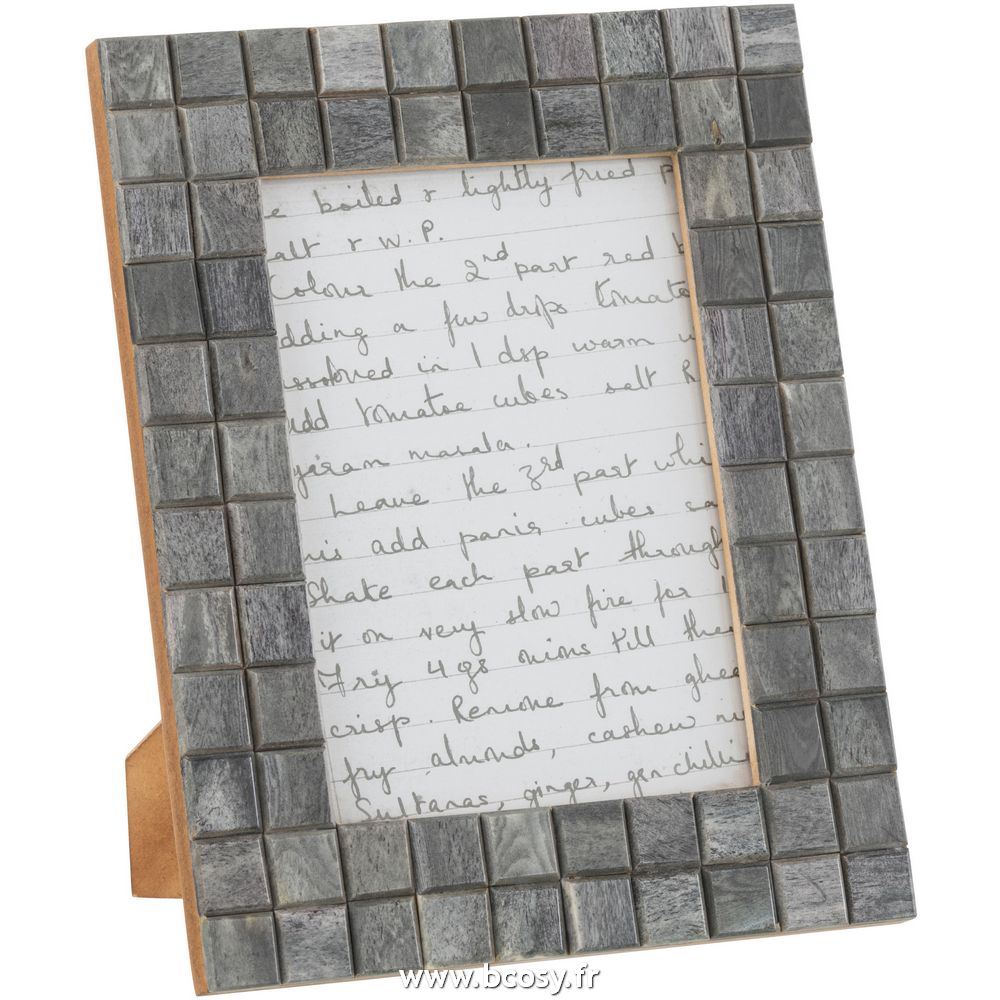 e boiled & lightly fried p
alt & W.P.
Colour the 2nd part red b
dding a few drips tomato
ssolved in 1 dsp warm w
add tomatoe cubes salt R
garam masala.
Leave the 3rd part whi
his add panir cubes sa
Shake each part through
it on very slow fire for 1
Fry 4 gs onions till the
crisp. Remove from ghee
fry almonds, cashew nu
Sultanas, ginger, gen chilli
www.bcosy.fr